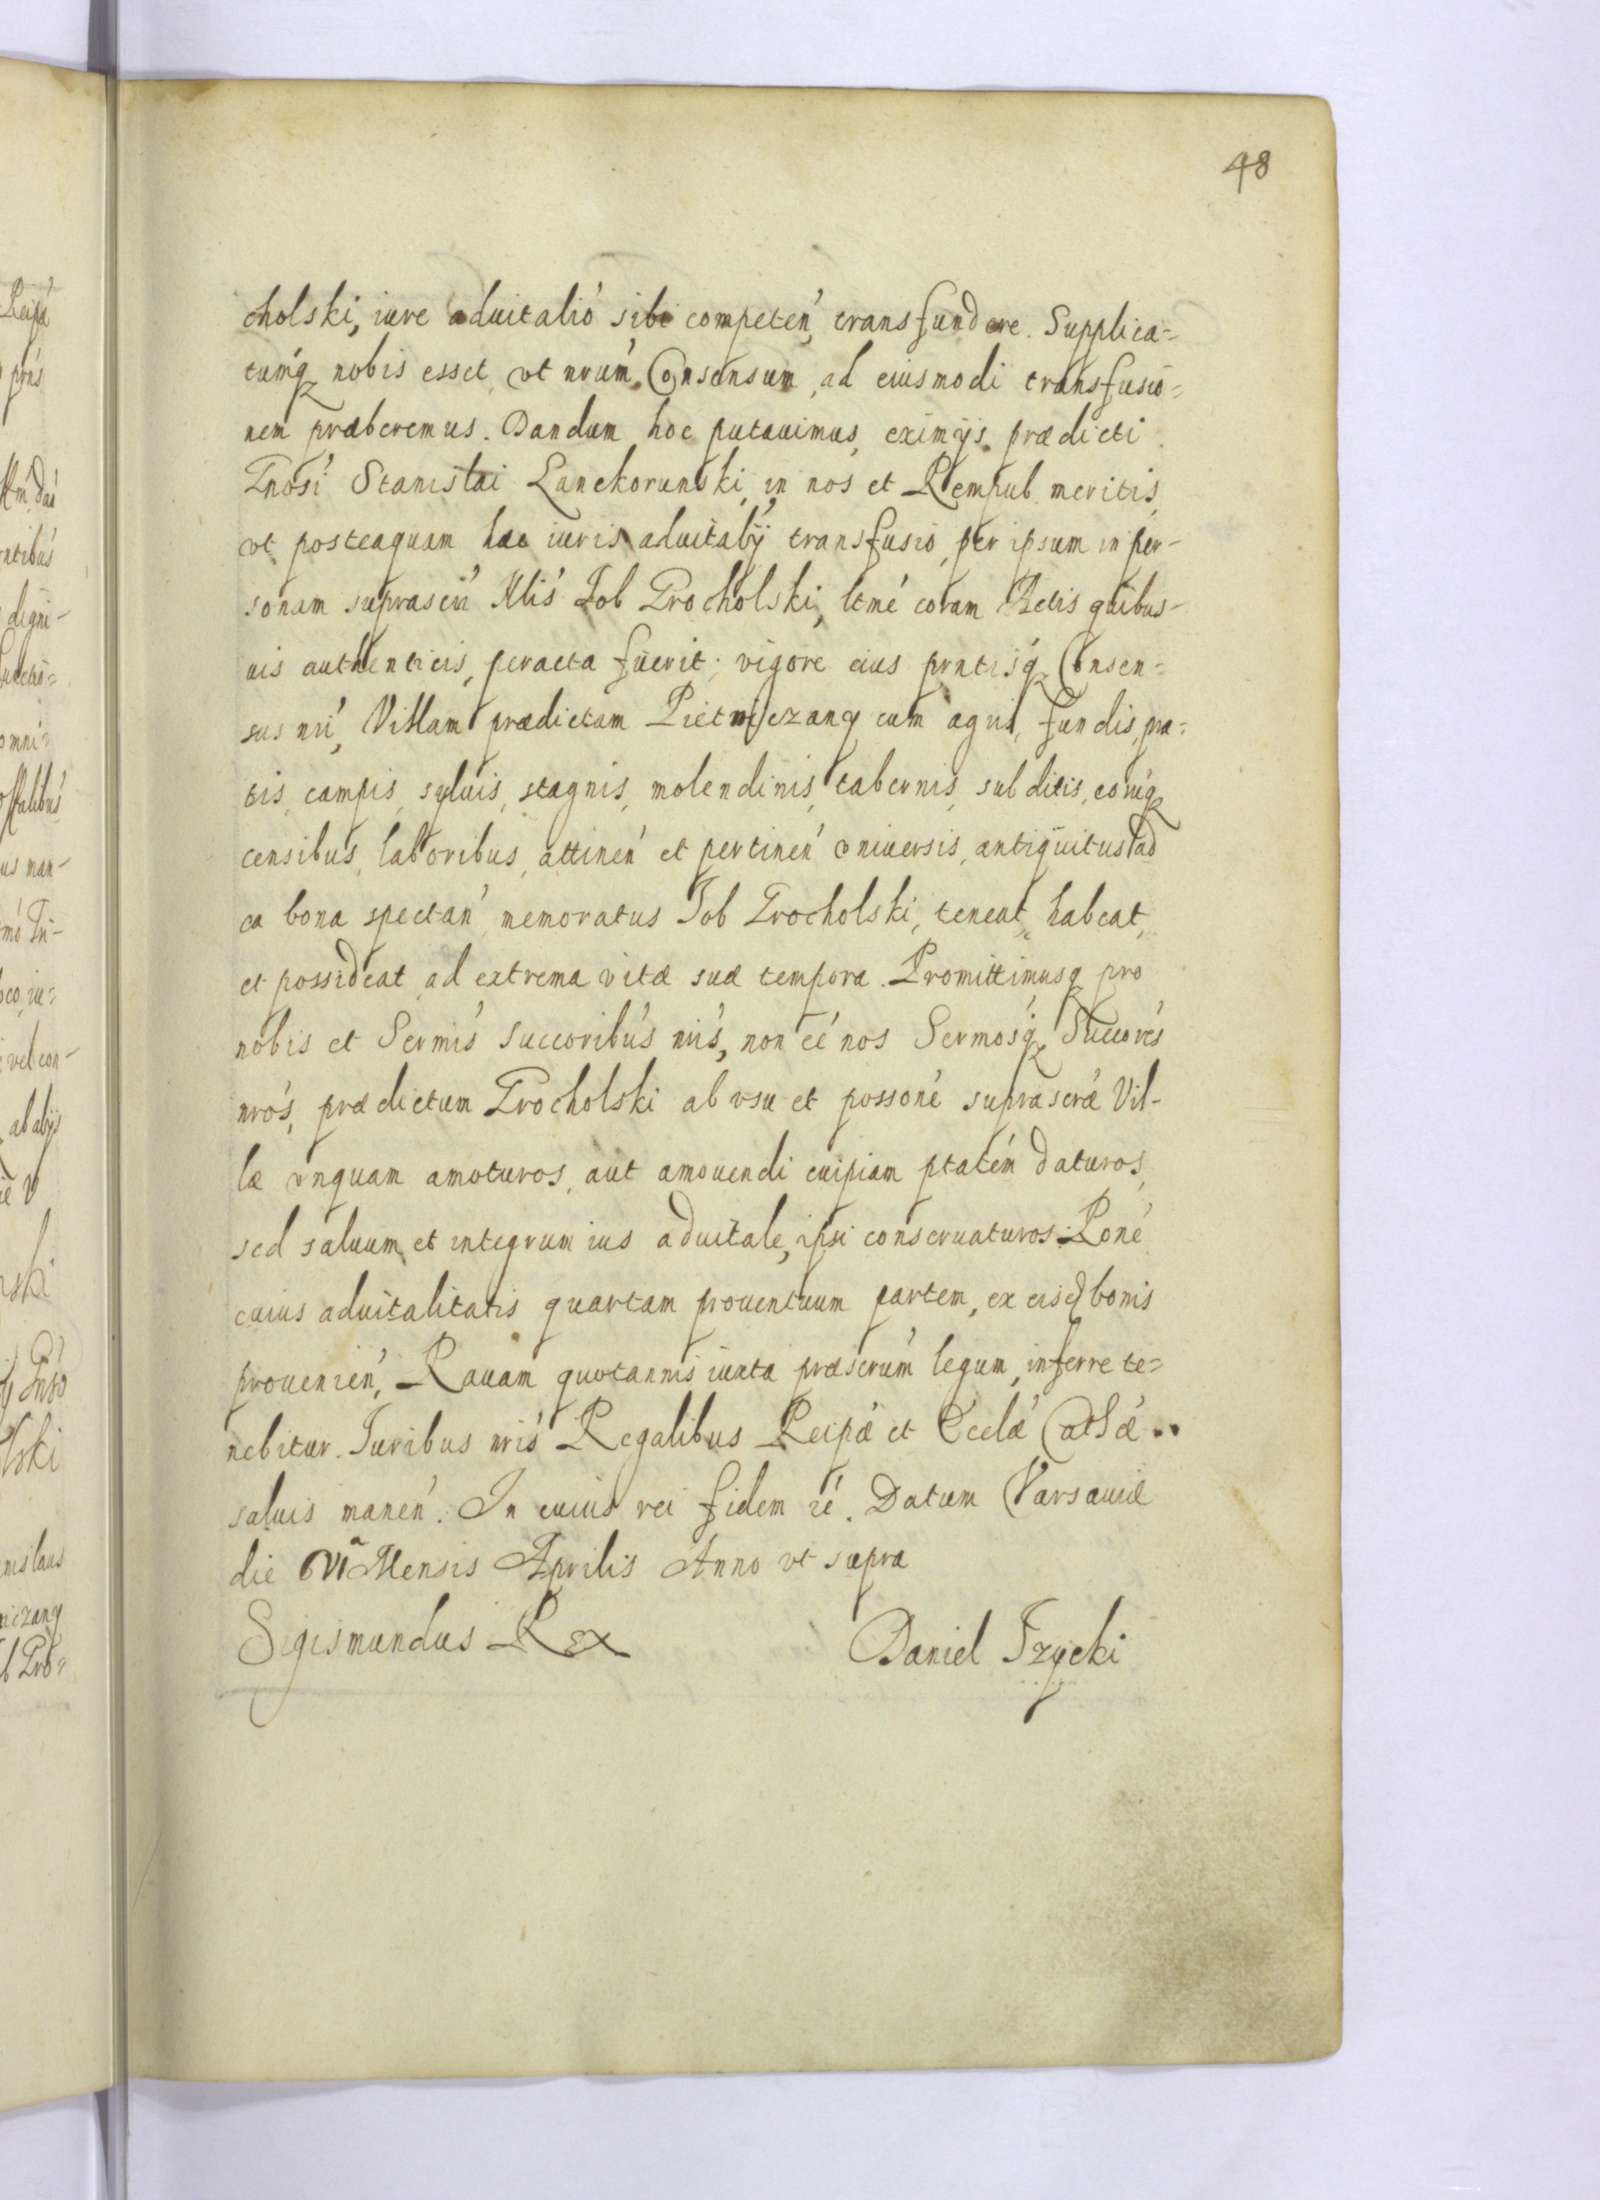 48
cholski, iure aduitalió sibi competeń, transfundere. Supplica=
tumq́ nobis esset, vt nrum̃ Consensum, ad eiusmodi transfusio=
nem præberemus. Dandum hoc putauimus, eximijs prædicti
Gnosi Stanislai Lanckorunski, in nos et Rempub. meritis,
vt posteaquam hac iuris aduitalij transfusio, per ipsum in per-
sonam suprascri Nlis Job Procholski, ltme coram Actis quibus-
uis authenticis, peracta fuerit; vigore eius prntisq́ Consen=
sus nri, Villam prædictam Pietniczany cum agris, fundis, pra=
tis, campis, syluis, stagnis, molendinis, tabernis, subditis, eorúq
censibus, laboribus, attineń et pertineń vniuersis, antiquitus ad
ea bona spectań, memoratus Job Procholski, teneat, habeat,
et possideat, ad extrema vitæ suæ tempora. Promittimusq́ pro
nobis et Sermis Succoribus nris, non eé nos Sermosq́ Succores
nros, prædictum Procholski ab vsu et possone suprascræ Vil-
læ vnquam amoturos, aut amouendi cuipiam ptatem daturos,
sed saluum et integrum ius aduitale, ipsi conseruaturos. Rone
cuius aduitalitatis quartam prouentuum partem, ex eisd bonis
prouenień, Rauam quotannis iuxta præscrum legum, inferre te=
nebitur. Juribus nris Regalibus Reipæ et Ecclæ Cathæ
saluis maneń. In cuius rei fidem ré. Datum Varsauiæ
die VI Mensis Aprilis Anno vt supra
Sigismundus Rex Daniel Jzycki